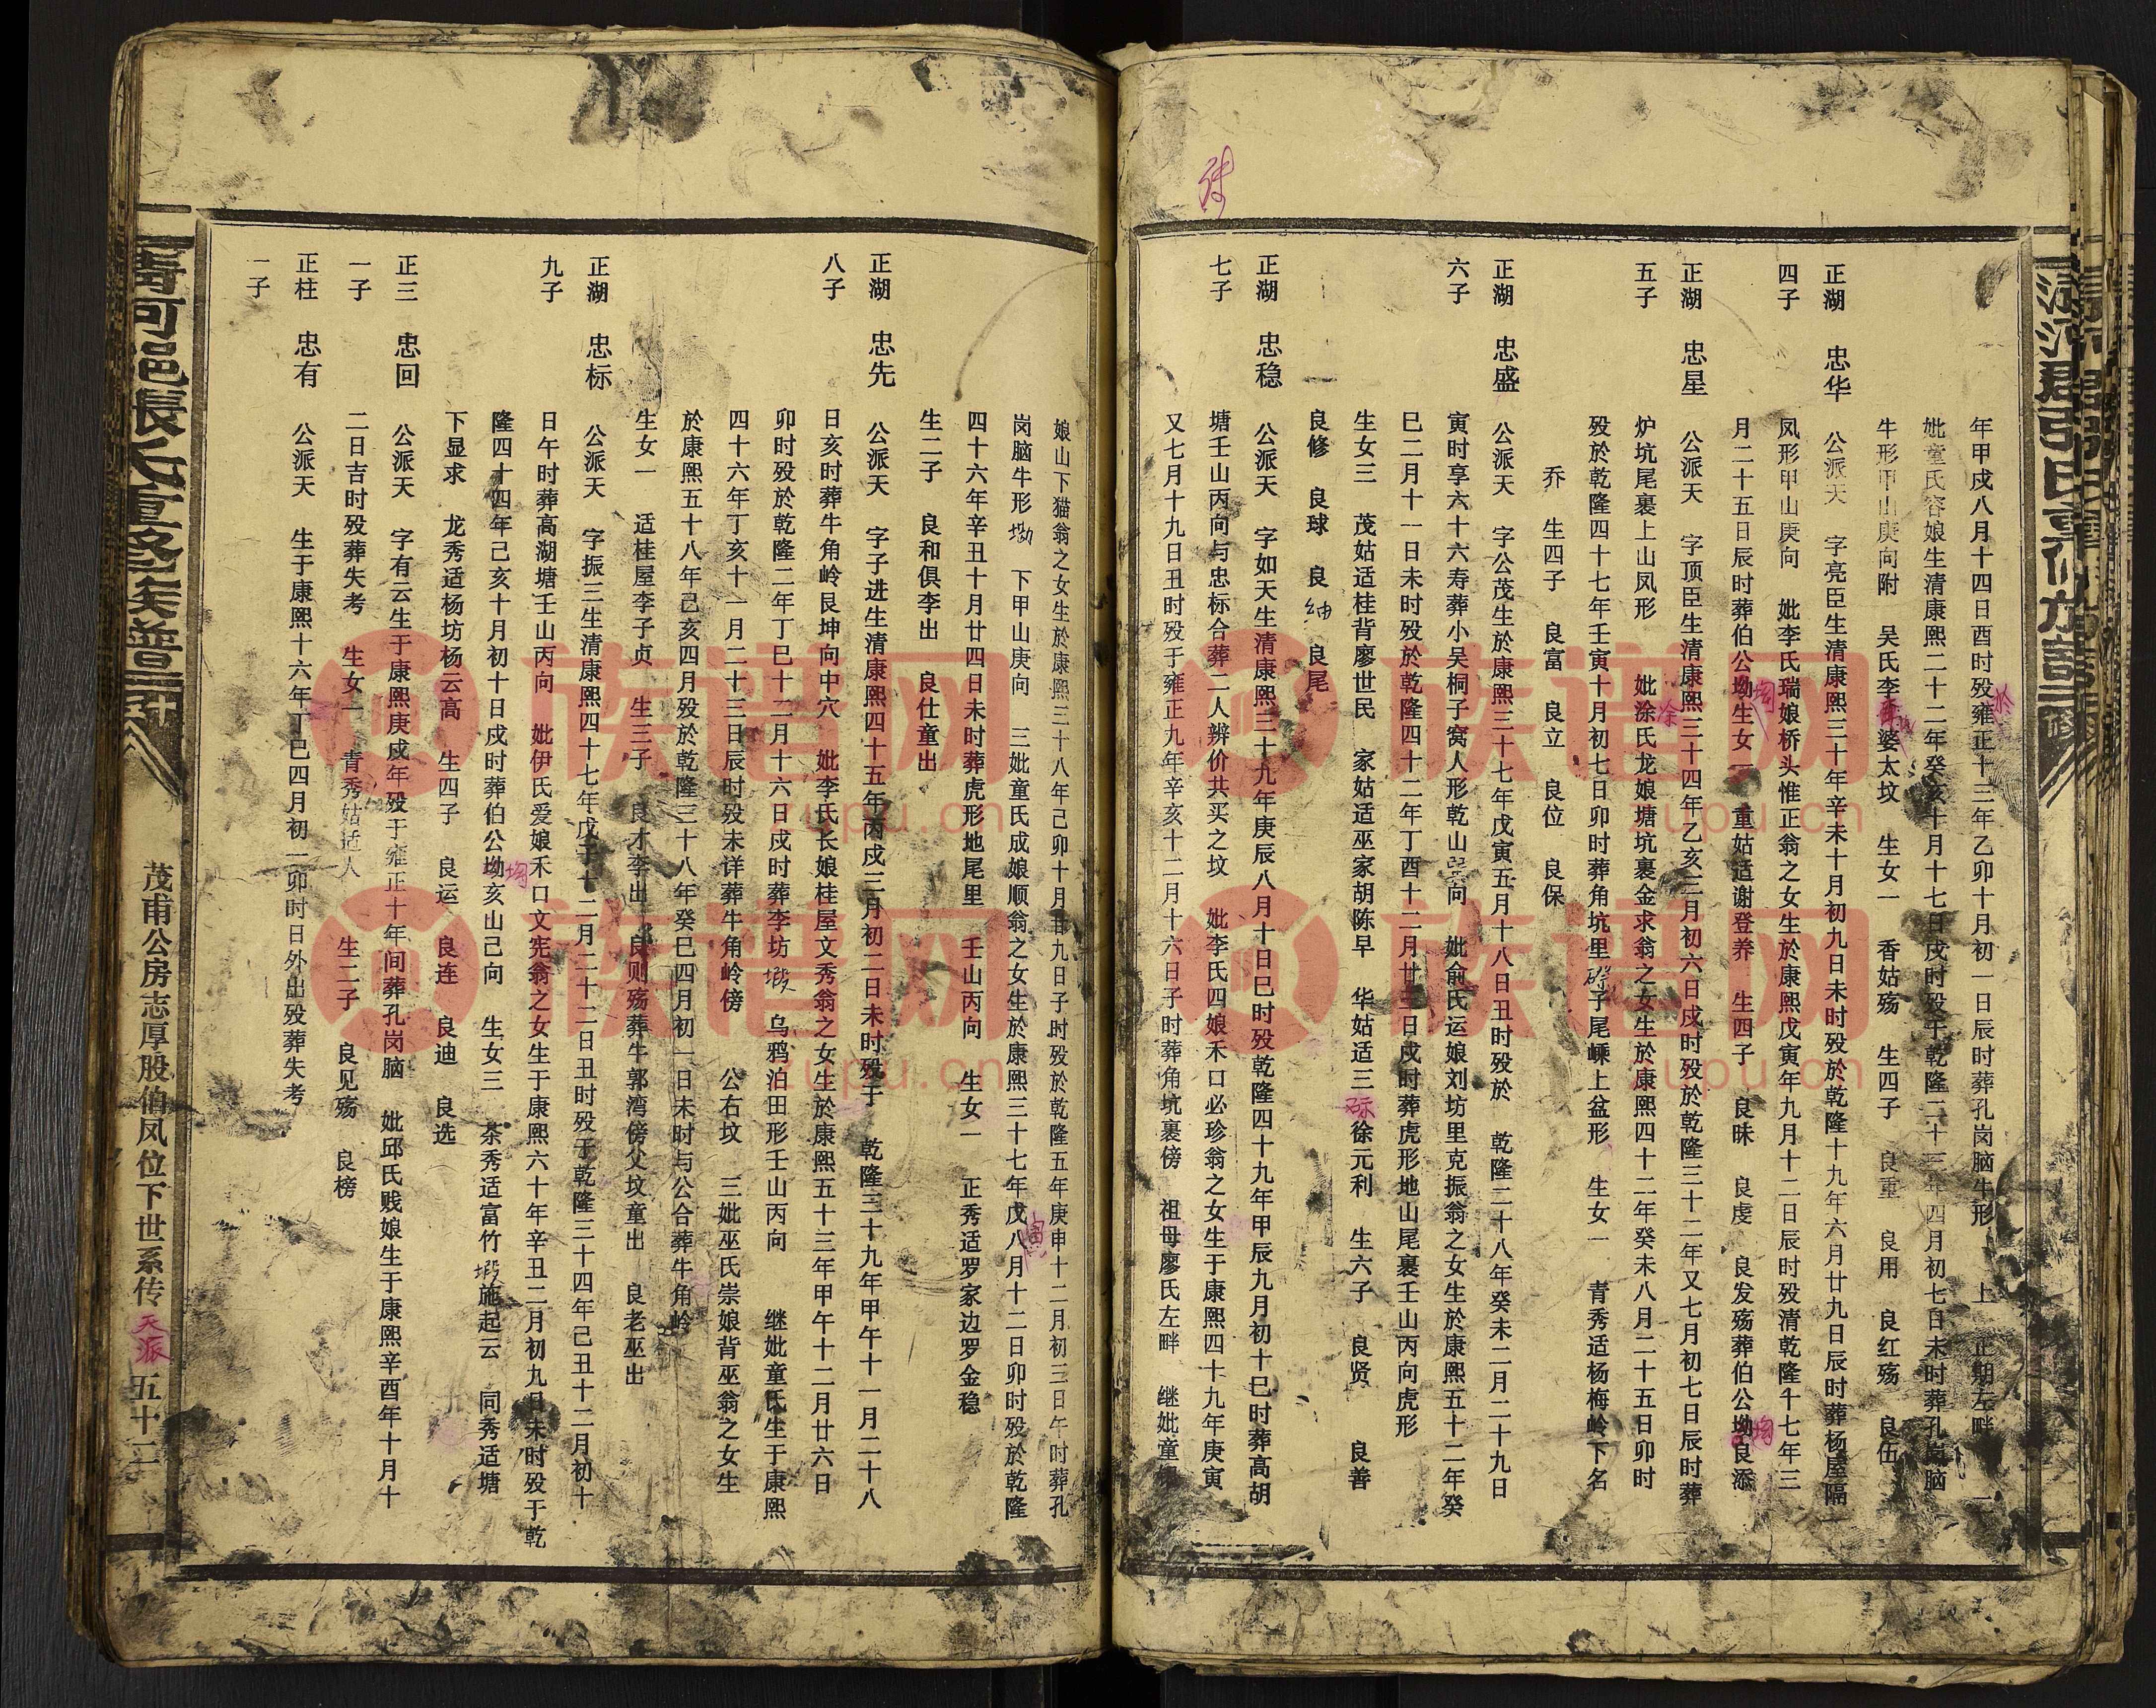 年甲戌八月十四日酉时殁雍正十三年乙卯十月初一日辰时葬孔岗脑牛形 上 正期左畔 二
妣童氏容娘生清康熙二十二年癸亥十月十七日戌时殁于乾隆二十三年四月初七日未时葬孔岗脑
牛形甲山庚向附 吴氏李婆太坟 生女一 香姑殇 生四子 良重 良用 良红殇 良伍
正湖 忠华 公派天 字亮臣生清康熙三十年辛未十月初九日未时殁於乾隆十九年六月廿九日辰时葬杨屋隔
四子 凤形甲山庚向 妣李氏瑞娘桥头惟正翁之女生於康熙戊寅年九月十二日辰时殁清乾隆十七年三
月二十五日辰时葬伯公坳生女一 重姑适谢登养 生四子 良昧 良虔 良发殇葬伯公坳良添
正湖 忠星 公派天 字顶臣生清康熙三十四年乙亥二月初六日戌时殁於乾隆三十二年又七月初七日辰时葬
五子 炉坑尾裹上山凤形 妣涂氏龙娘塘坑裹金求翁之女生於康熙四十二年癸未八月二十五日卯时
殁於乾隆四十七年壬寅十月初七日卯时葬角坑里磜子尾嵊上盆形 生女一 青秀适杨梅岭下名
乔 生四子 良富 良立 良位 良保
正湖 忠盛 公派天 字公茂生於康熙三十七年戊寅五月十八日丑时殁於 乾隆二十八年癸未二月二十九日
六子 寅时享六十六寿葬小吴桐子窝人形乾山巽向 妣俞氏运娘刘坊里克振翁之女生於康熙五十二年癸
巳二月十一日未时殁於乾隆四十二年丁酉十二月廿二日戌时葬虎形地山尾裹壬山丙向虎形
生女三 茂姑适桂背廖世民 家姑适巫家胡陈早 华姑适三徐元利 生六子 良贤 良善
良修 良球 良䌷 良尾
正湖 忠稳 公派天 字如天生清康熙三十九年庚辰八月十日巳时殁乾隆四十九年甲辰九月初十巳时葬高胡
七子 塘壬山丙向与忠标合葬二人辨价共买之坟 妣李氏四娘禾口必珍翁之女生于康熙四十九年庚寅
又七月十九日丑时殁于雍正九年辛亥十二月十六日子时葬角坑裹傍 祖母廖氏左畔 继妣童
娘山下猫翁之女生於康熙三十八年己卯十月廿九日子时殁於乾隆五年庚申十二月初三日午时葬孔
岗脑牛形坳 下甲山庚向 三妣童氏成娘顺翁之女生於康熙三十七年戊八月十二日卯时殁於乾隆
四十六年辛丑十月廿四日未时葬虎形地尾里 壬山丙向 生女一 正秀适罗家边罗金稳
生二子 良和俱李出 良仕童出
正湖 忠先 公派天 字子进生清康熙四十五年丙戌三月初二日未时殁于 乾隆三十九年甲午十一月二十八
八子 日亥时葬牛角岭艮坤向中穴 妣李氏长娘桂屋文秀翁之女生於康熙五十三年甲午十二月廿六日
卯时殁於乾隆二年丁巳十二月十六日戌时葬李坊塅 乌鸦泊田形壬山丙向 继妣童氏生于康熙
四十六年丁亥十一月二十三日辰时殁未详葬牛角岭傍 公右坟 三妣巫氏崇娘背巫翁之女生
於康熙五十八年己亥四月殁於乾隆三十八年癸巳四月初一日未时与公合葬牛角岭
生女一 适桂屋李子贞 生三子 良才李出 良则殇葬牛郭湾傍父坟童出 良老巫出
正湖 忠标 公派天 字振三生清康熙四十七年戊子十二月二十二日丑时殁于乾隆三十四年己丑十二月初十
九子 日午时葬高湖塘壬山丙向 妣伊氏爱娘禾口文宪翁之女生于康熙六十年辛丑二月初九日未时殁于乾
隆四十四年己亥十月初十日戌时葬伯公坳亥山己向 生女三 茶秀适富竹塅施起云 同秀适塘
下显求 龙秀适杨坊杨云高 生四子 良运 良连 良迪 良选
正三 忠回 公派天 字有云生于康熙庚戌年殁于雍正十年间葬孔岗脑 妣邱氏贱娘生于康熙辛酉年十月十
一子 二日吉时殁葬失考 生女一 青秀姑适人 生二子 良见殇 良榜
正柱 忠有 公派天 生于康熙十六年丁巳四月初一卯时日外出殁葬失考
一子
清河邑張氏重修族譜
茂甫公房志厚股伯凤位下世系传 天派 五十二